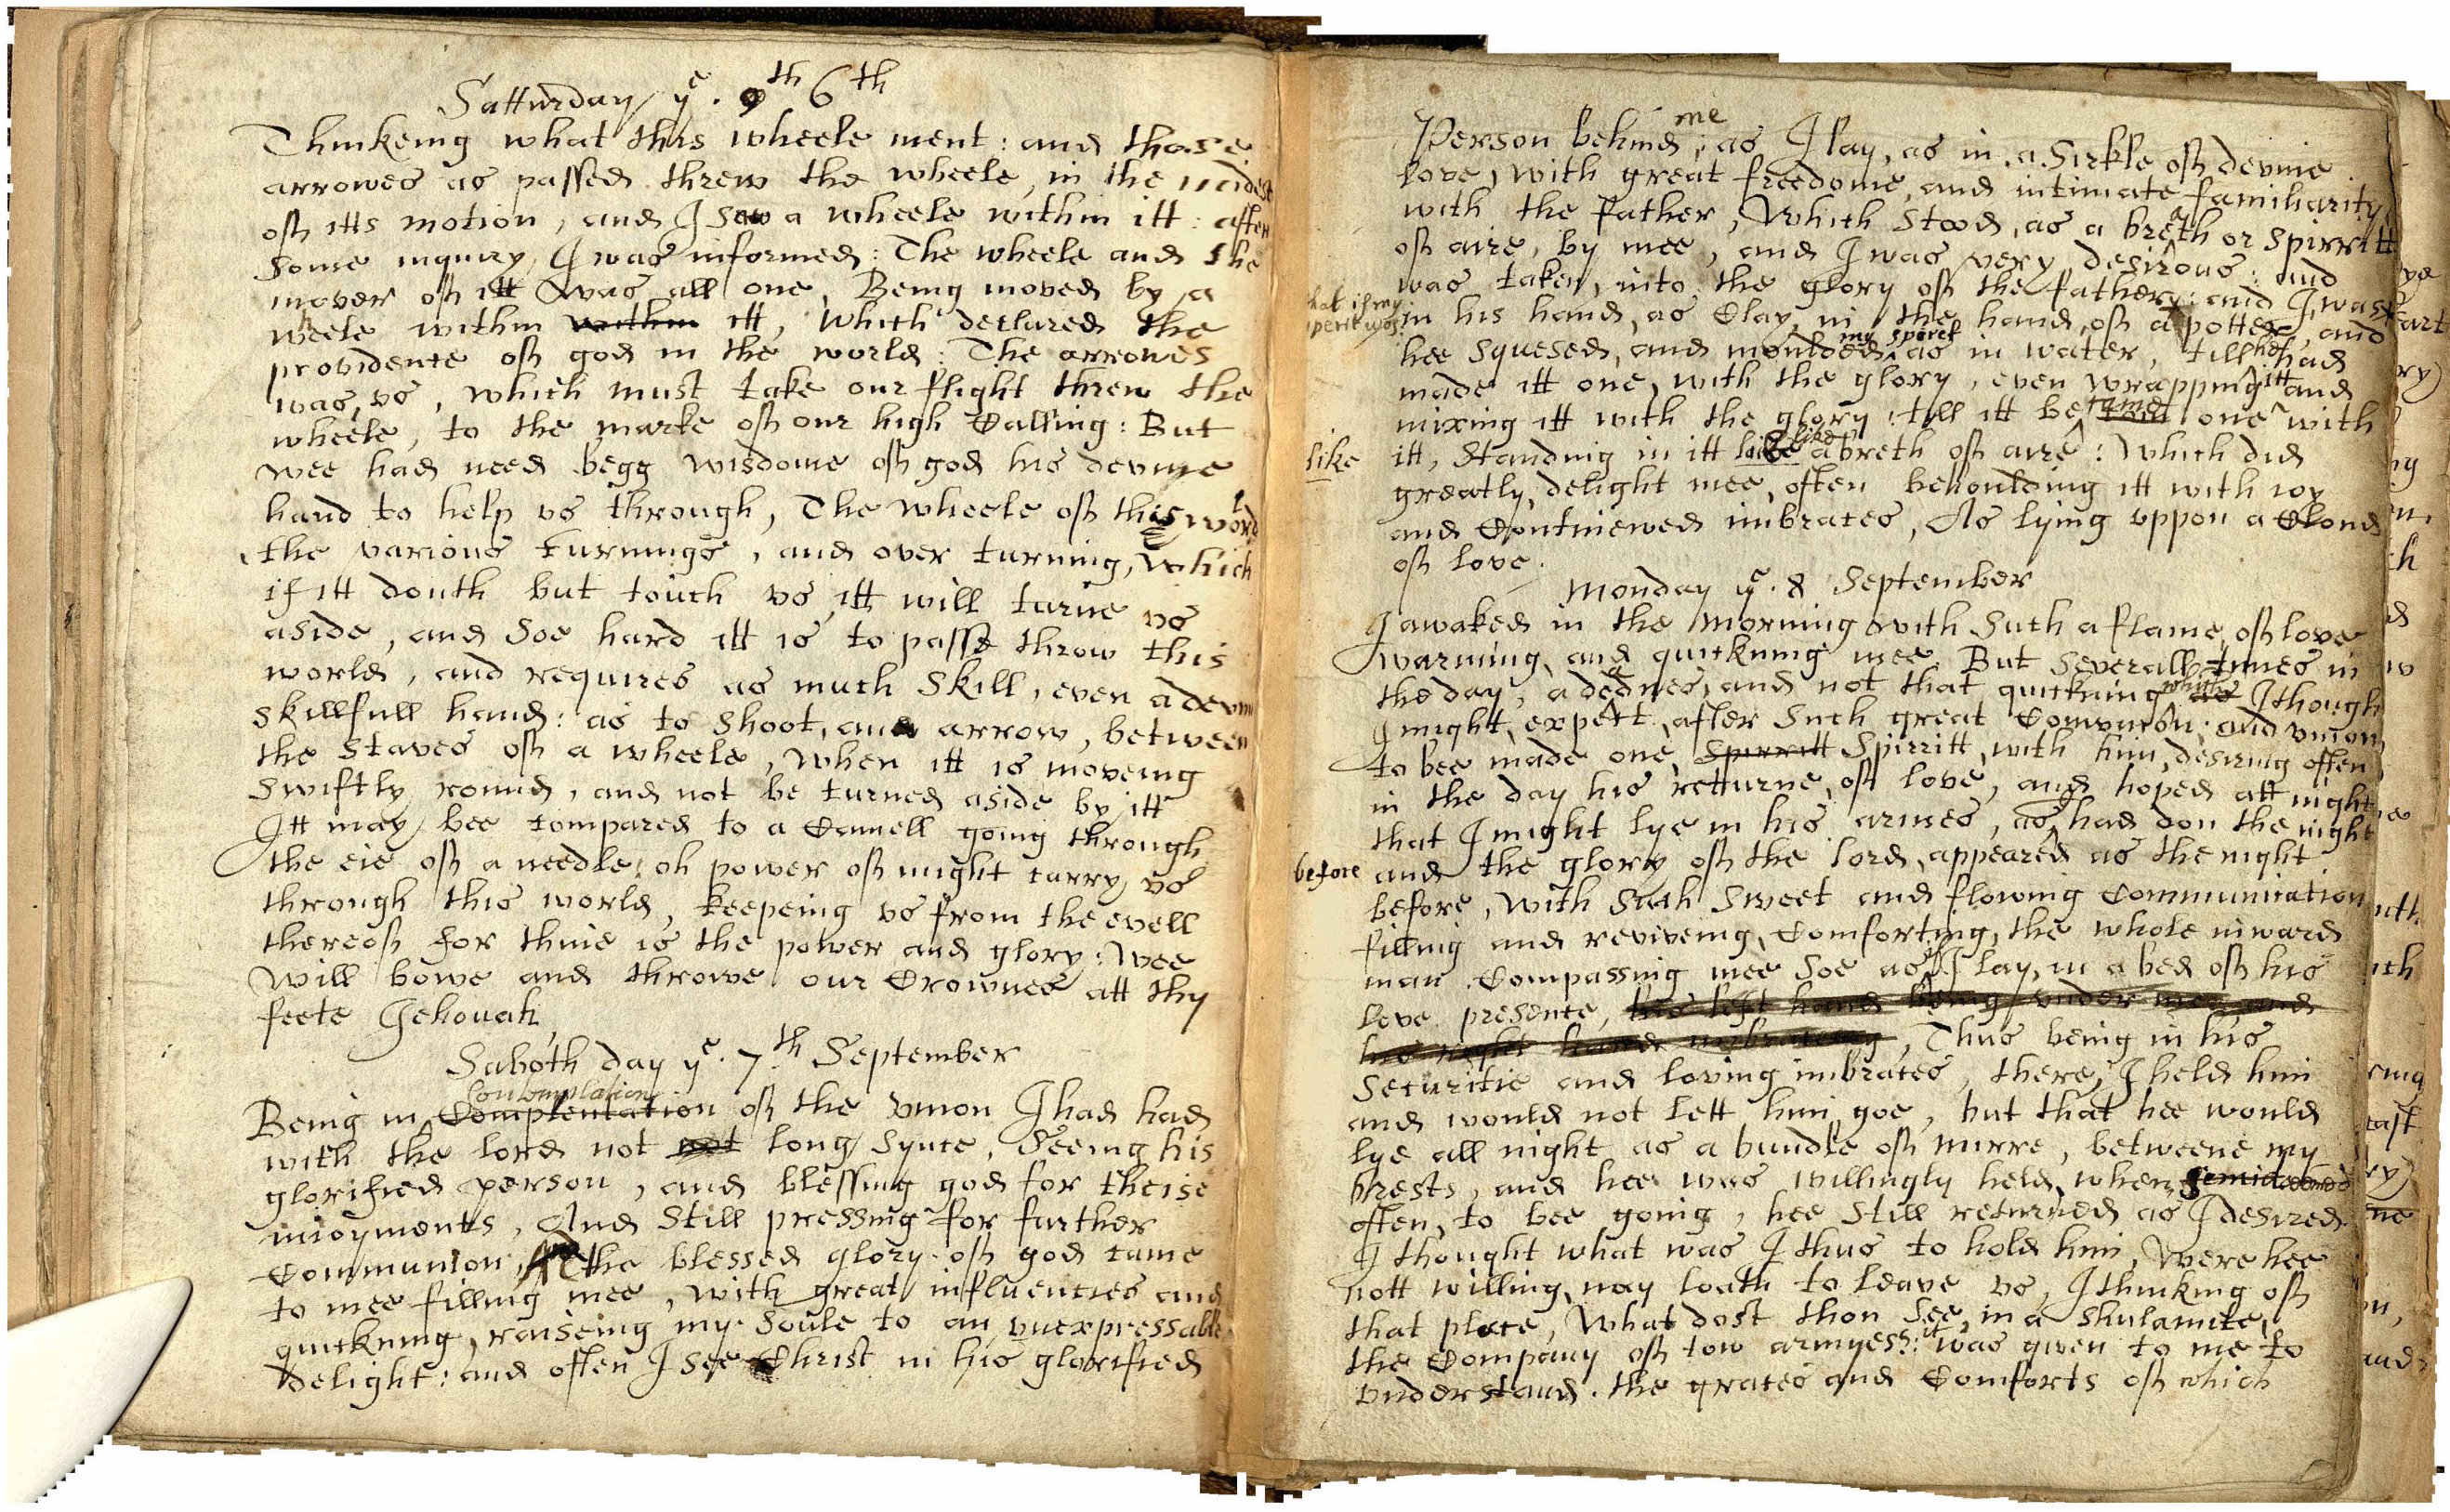 Satturday yͤ. 9th 6th
Thinkeing what this wheele ment: and those
arrowes as passed threw the wheele, in the midest
off itts motion, and I saw a wheele within itt: after
some inquiry I was informed: The wheele and the
mover off itt was all one, Being moved by a
wheele within within itt, which declared the
providence off god in the world: The arrowes
was, vs, which must take our flight threw the
wheele, to the marke off our high Calling: But
wee had need begg wisdome off god his devine
hand to help vs through, The wheele off this world
the various turnings, and over turning, which
if itt douth but touch vs itt will turne vs
aside, and soe hard itt is to passe throw this
world, and requires as much skill, even a devine
skillfull hand: as to shoot, and arrow, between
the staves off a wheele, when itt is moveing
swiftly round, and not be turned aside by itt
Itt may bee compared to a Camell going through
the eie off a needle: oh power off might carry vs
through this world, keepeing vs from the evell
thereoff for thine is the power and glory: wee
will bowe and throwe our Crownes att thy
feete Jehovah
Saboth day yͤ. 7th September
Contemplation
Being in Complentation off the vnion I had had
with the lord not not long synce, Seeing his
glorified person, and blessing god for theise
inioyments, And still pressing for further
Communion, the blessed glory off god came
to mee filling mee, with great influencies and
quickning, raiseing my soule to an vnexpressable
delight: and often I see Christ in his glorified
me
Person behind, as I lay, as in a Sirkle off devine
love, with great freedome, and intimate familiarity
with the father, which stood, as a breth or spirritt
off aire, by mee, and I was very desirous: and
was taken, into the glory off the father: and I was
that if my sperit was
in his hand, as Clay, in the hand, off a potter, and
my speret
hee squesed, and moulded, as in water, till hee had
made itt one, with the glory, even wrapping itt and
mixing itt with the glory till itt became one with
like
itt, standing in itt like like a breth off aire: which did
greatly, delight mee, often behoulding itt with ioy
and Continewed imbraces, As lying vppon a Cloud
off love.
Monday yͤ. 8 September
I awaked in the morning with such a flame, off love
warming, and quickning mee. But severall times in
the day, a deadnes, and not that quickning which I though
I might, expect, after such great Comunion: and vnion,
to bee made one, spirritt Spirritt, with him, desiring often
in the day his retturne, off love, and hoped att night
that I might lye in his armes, as had don the night
before and the glory off the lord, appeared as the night
before, with such sweet and flowing Communication
filling and reviveing, Comforting, the whole inward
man Compassing mee soe as I lay, in a bed off his
love presence, his left hand being vnder mee and
his right hand imbraceing, Thus being in his
Securitie and loving imbraces, there, I held him
and would not lett him goe, but that hee would
lye all night as a bundle off mirre, betweene my
brests, and hee was willingly held, when
often, to bee going, hee still returned as I desired.
I thought what was I thus to hold him, were hee
nott willing, nay loath to leave vs, I thinking off
that place, What dost thou See, in a Shulamite,
the Company off tow armyess: it was given to me to
vnderstand. the graces and Comforts off which